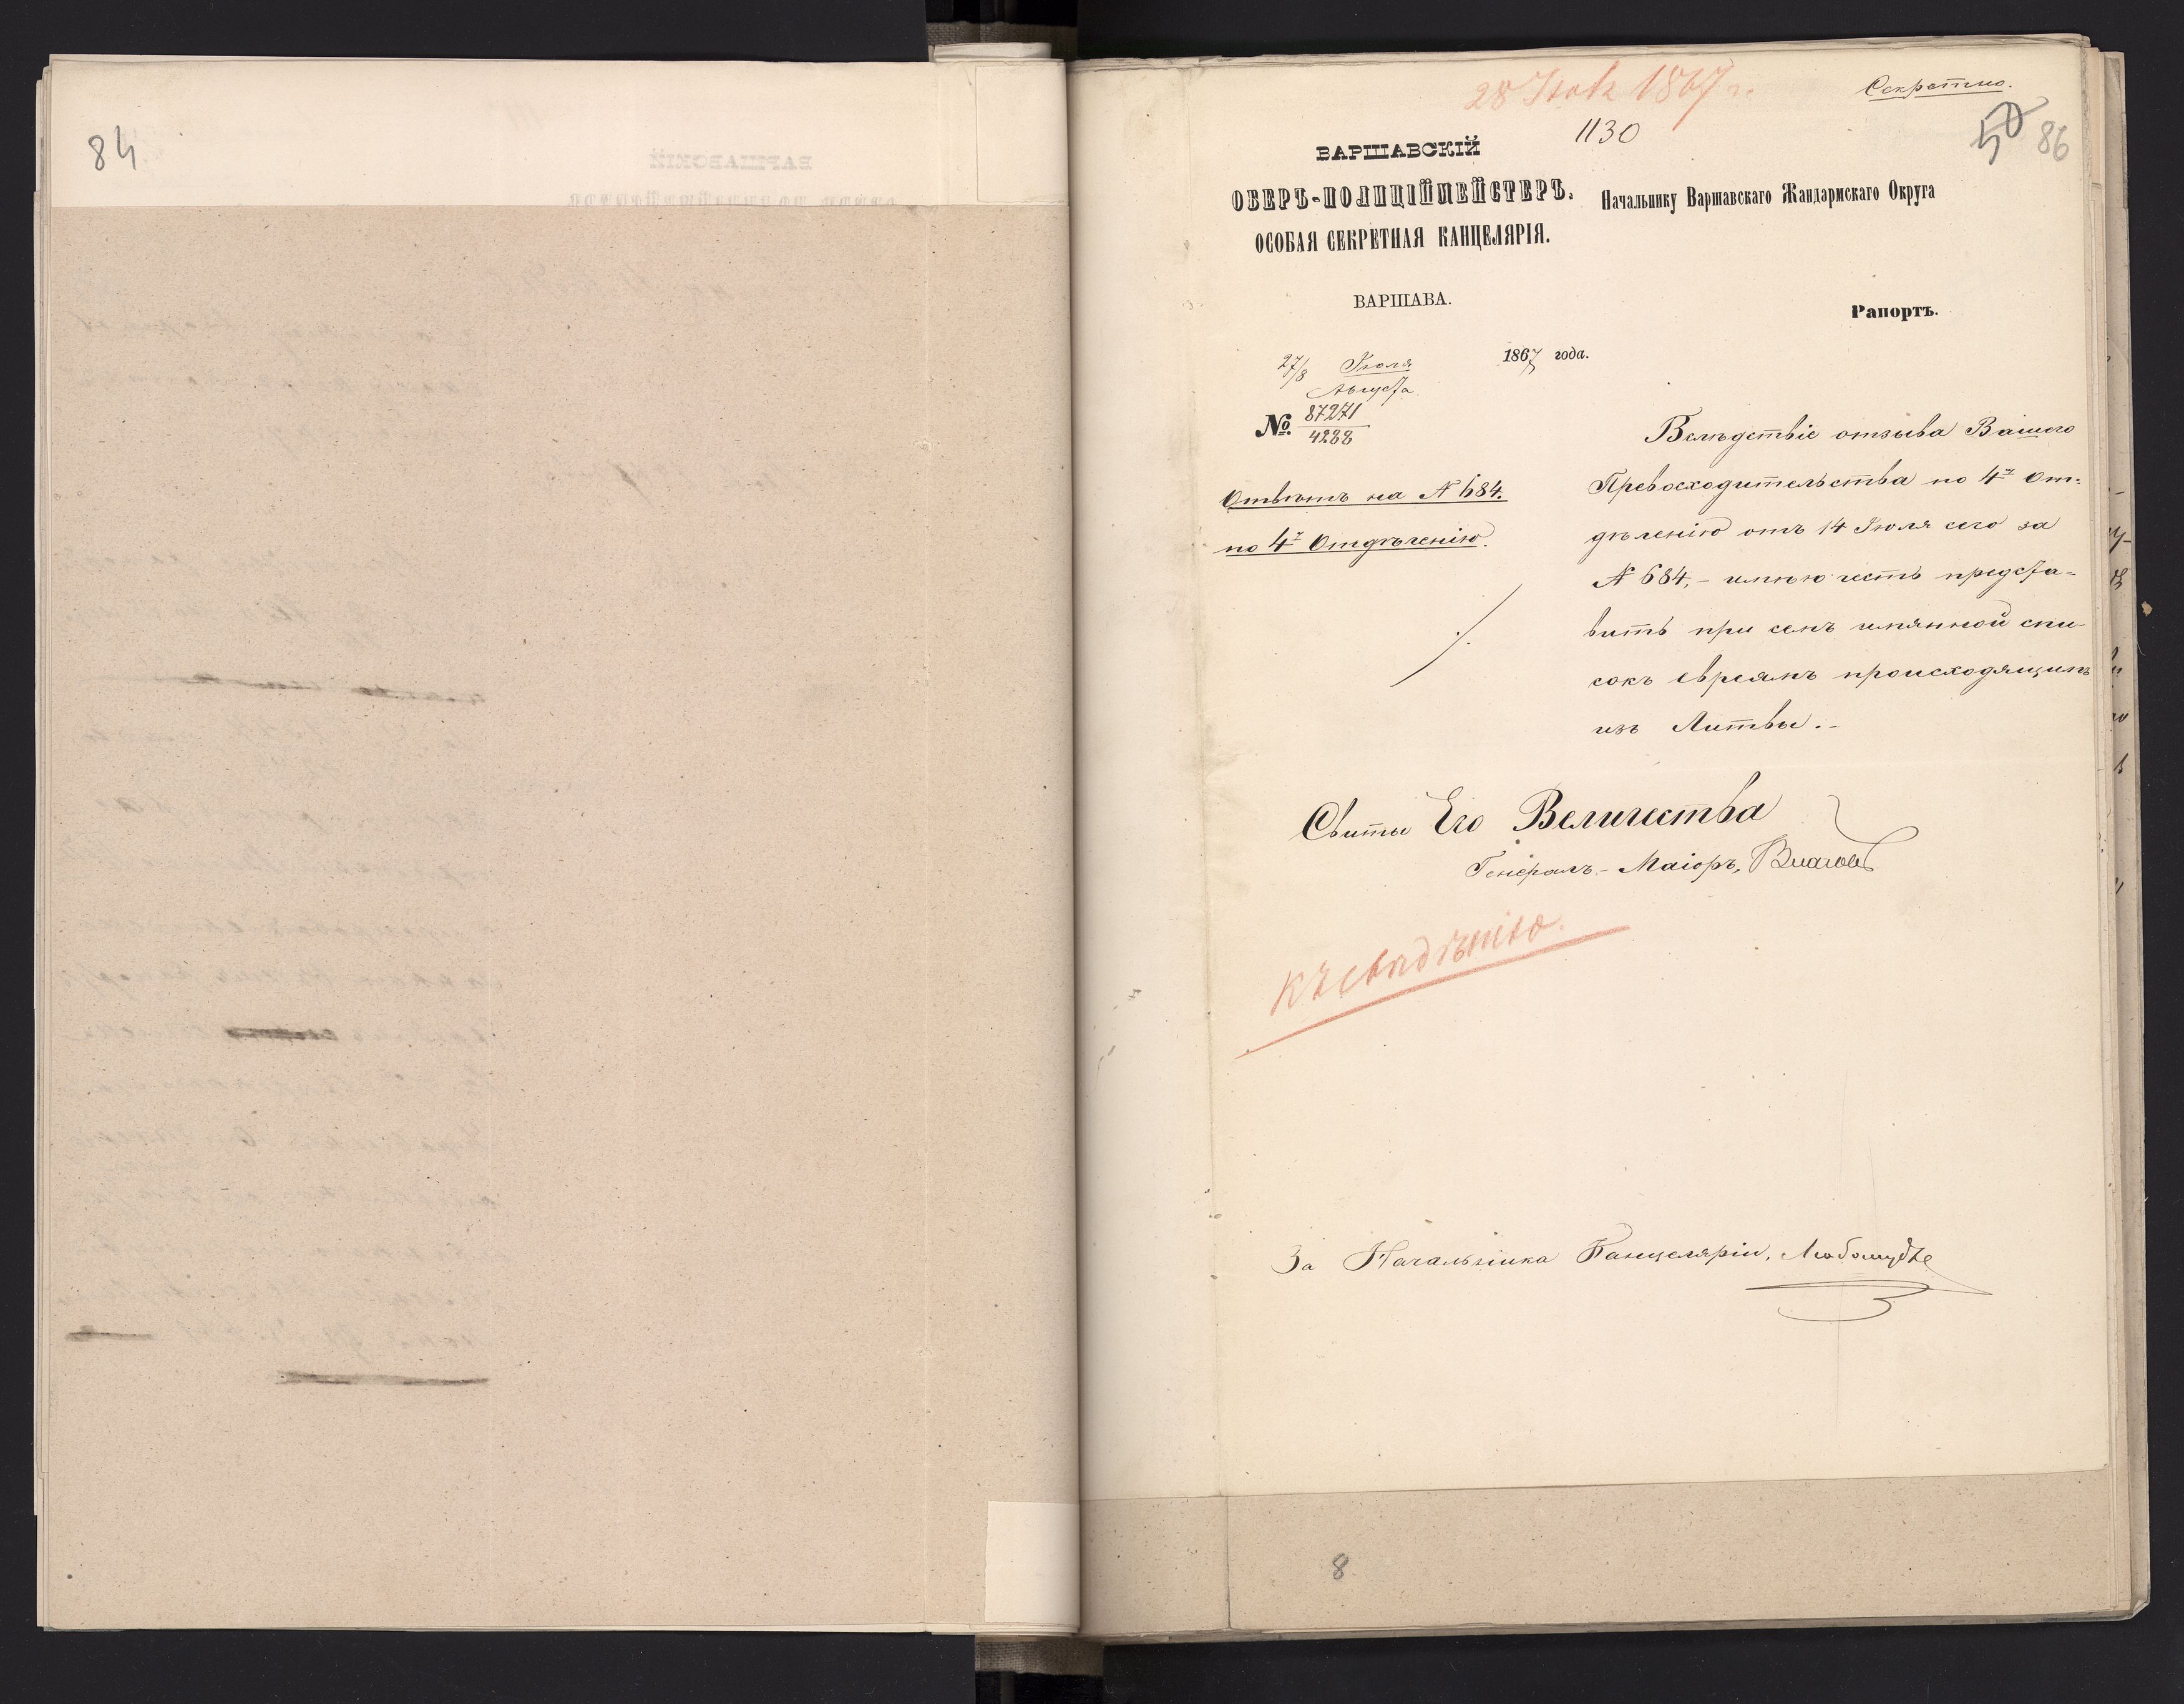 84
28 Июля 1867 г.
Секретно.
1130
50 86
ВАРШАВСКІЙ
ОБЕРЪ-ПОЛИЦІЙМЕЙСТЕРЪ.
ОСОБАЯ СЕКРЕТНАЯ КАНЦЕЛЯРІЯ.
ВАРШАВА.
27/8 Іюля
Августа
1867 года.
№ 87271
4288
Отвѣтъ на № 684.
по 4у Отдѣленію.
Начальнику Варшавскаго Жандармскаго Округа
Рапортъ.
Вслѣдствіе отзыва Вашего
Превосходительства по 4у От-
дѣленію отъ 14 Іюля сего за
№ 684, - имѣю честь предста-
вить при семъ имянной спи-
сокъ евреямъ происходящимъ
изъ Литвы. -
Свиты Его Величества
Генералъ-Маіоръ, Власовъ
Къ свѣдѣнію.
За Начальника Канцеляріи,
8